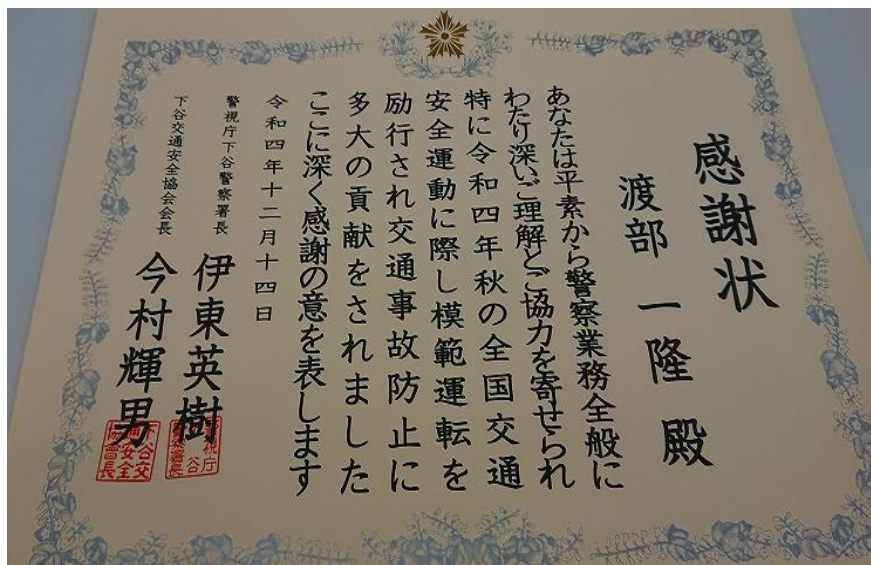 感謝状
渡部 一隆 殿
あなたは平素から警察業務全般に
わたり深いご理解とご協力を寄せられ
特に令和四年秋の全国交通
安全運動に際し模範運転を
励行され交通事故防止に
多大の貢献をされました
ここに深く感謝の意を表します
令和四年十二月十四日
警視庁下谷警察署長
伊東英樹
下谷交通安全協会会長
今村輝男
警視庁下谷警察署長
下谷交通安全協會長